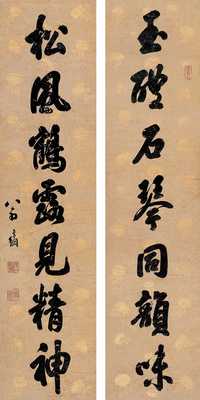 玉醴石琴同韻味
松風鶴露見精神